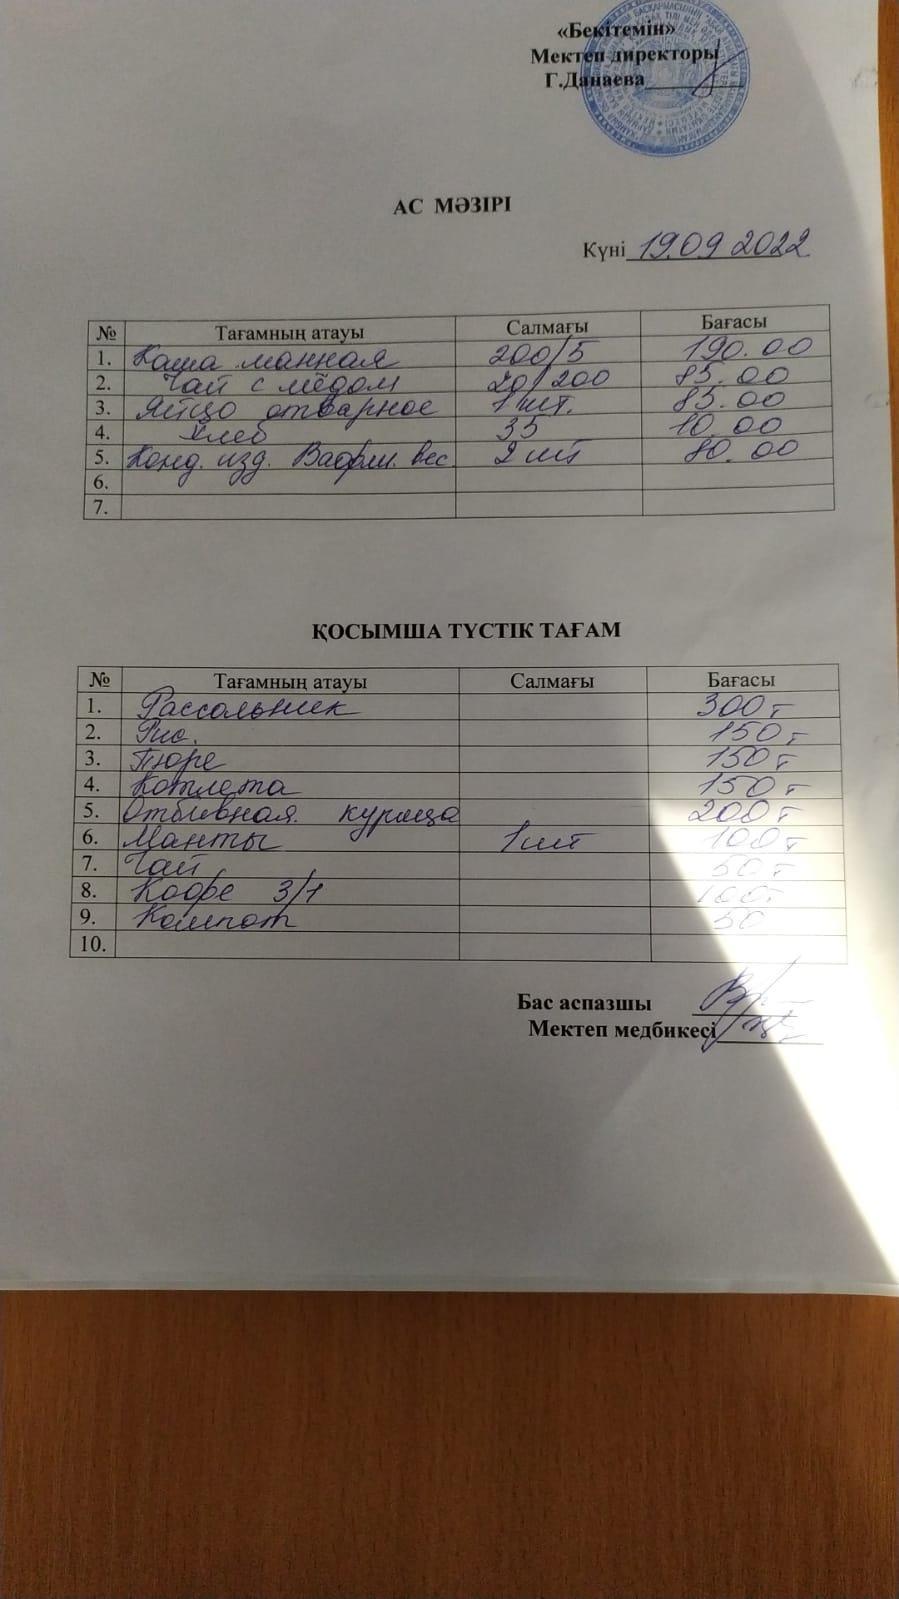 «Бекітемін»
Мектеп директоры
Г.Данаева
АС МӘЗІРІ
Күні 19.09 2022
№ Тағамның атауы Салмағы Бағасы
1. Каша манная 200/5 190.00
2. Чай с мёдом 20/200 85.00
3. Яйцо отварное 1 шт. 85.00
4. Хлеб 35 10.00
5. Конд. изд. Вафли. вес. 2 шт 80.00
6.
7.
ҚОСЫМША ТҮСТІК ТАҒАМ
№ Тағамның атауы Салмағы Бағасы
1. Рассольник 300 т
2. Рис. 150 т
3. Пюре 150 т
4. Котлета 150 т
5. Отбивная. курица 200 т
6. Манты 1 шт 100 т
7. Чай 50 т
8. Кофе 3/1 100т
9. Компот 50
10.
Бас аспазшы
Мектеп медбикесі